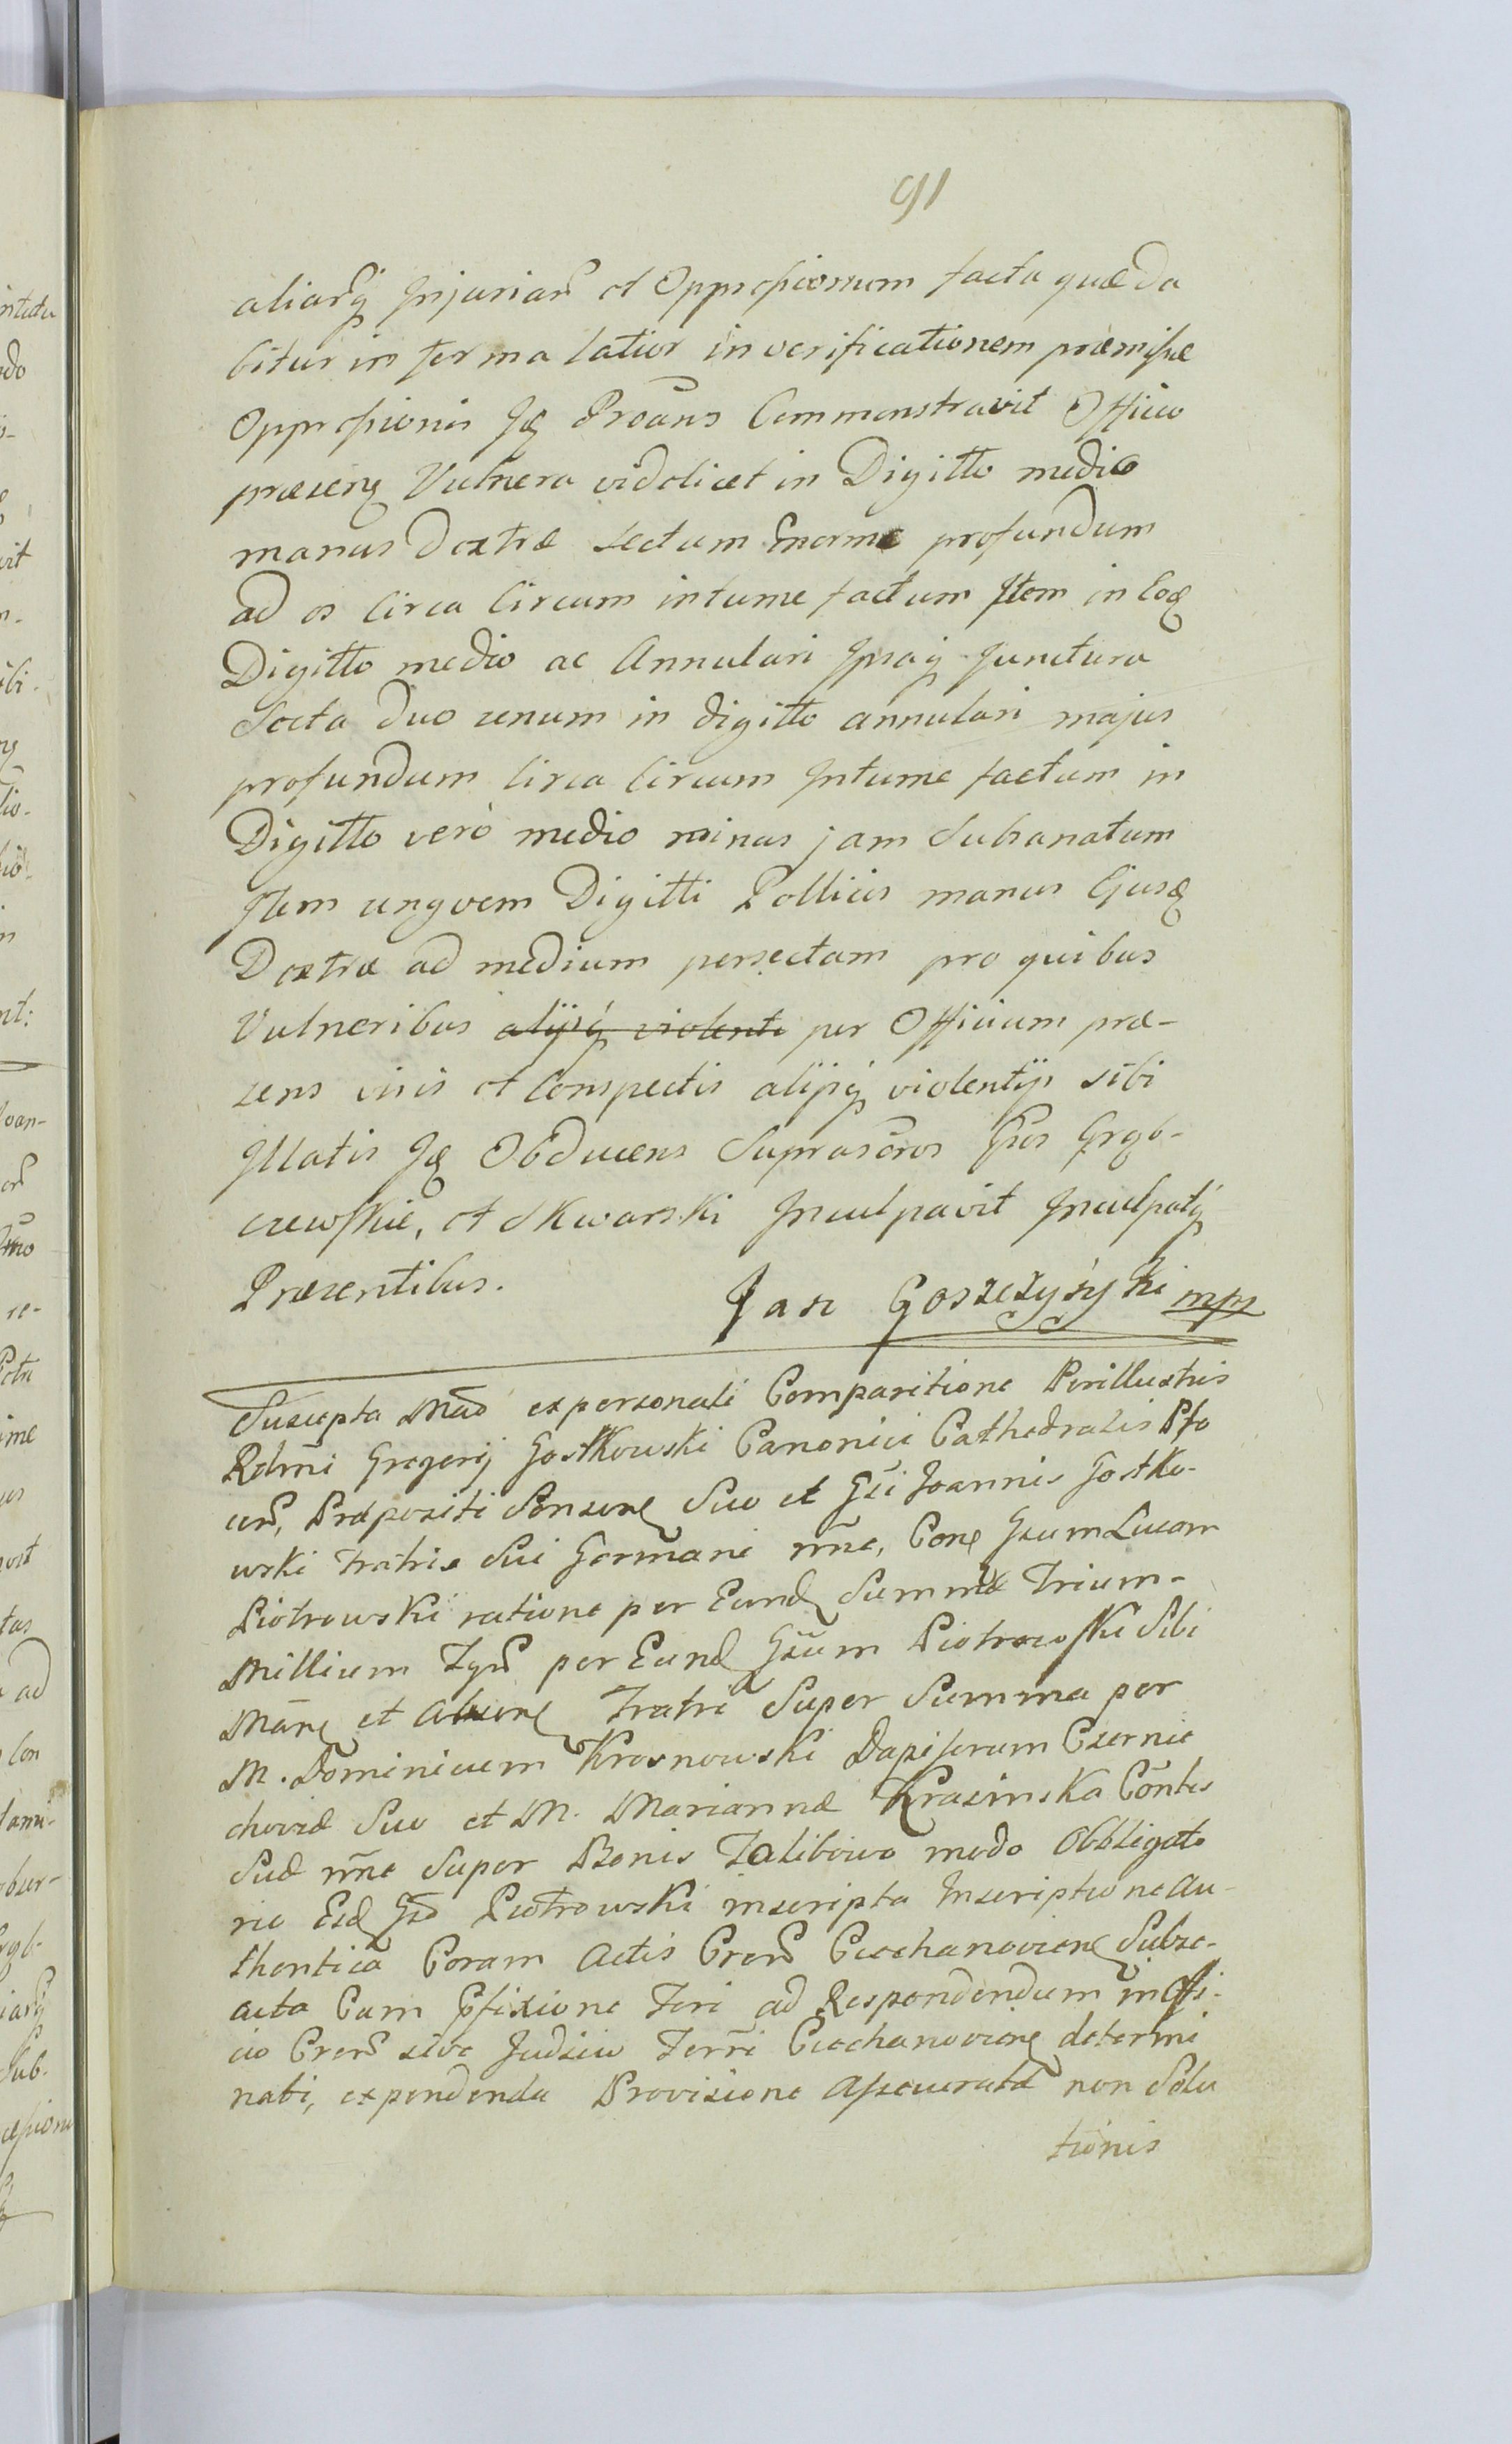 91
aliarq́ Injuriar̃ et Oppressionum facta quæ da
bitur in ferma latior in verificationem præmissæ
Oppressionis Jq Proãns Commonstravit Officio
præsenq Vulnera videlicet in Digitto medio
manus dextræ sectum Enorme profundum
ad os Circa Circum intume factum Item in Eoq
Digitto medio ac Annulari Ipsaq Junctura
Secta duo unum in digitto annulari majus
profundum Circa Circum Intume factum in
Digitto verò medio minus jam Subsanatum
Item ungvem Digitti Pollicis manus Ejusq
Dextræ ad medium persectam pro quibus
Vulneribus alijsq́ violenti per Officium præ-
sens visis et Conspectis alijsq́ violentijs sibi
Illatis Jq Obducens Suprascr̃os Gsos Grąb-
czewskie, et Skwarski Inculpavit Inculpatq́
Præsentibus.
Jan Goszczyński mpp
Suscepta Mãõ ex personali Comparitione Perillustris
Rdm̃i Gregorij Gostkowski Canonici Cathedralis Pło
cen̄, Præpositi Sonsenẽ Suo et Gs̃i Joannis Gostko-
wski Fratris Sui Germani ñne, Conq Gsum Lucam
Piotrowski ratione per Eund Summæ Trium-
Millium Fłr̃ per Eund Gsũm Piotrowski Sibi
Mañq et Fratri Super Summa per
M. Dominicum Krosnowski Dapiferum Czernie
choviæ Suo et M. Mariannæ Krasinska Cõntis
Suæ ñne Super Bonis modo Obbligato
rio Esd Gsõ Piotrowski inscripta Inscriptione Au-
thentica Coram Actis Cren̄ Ciechanoviens Subse-
cuta Cum Pfixione Fori ad Respondendum in Offi-
cio Cren̄ sive Judicio Terr̃i Ciechanoviens determi
nati, expendenda Provisione Assecurata non Solu
tionis